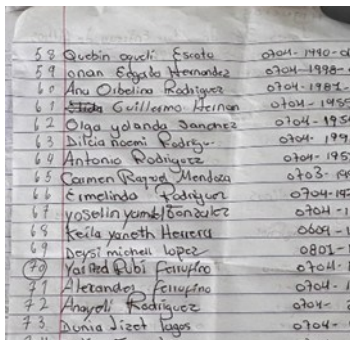 58 Quebin oqueli Escoto 0704-1990-0
59 onan Edgardo Hernandez 0704-1998-
60 Ana Orbelina Rodriguez 0704-1981-
61 Guillermo Hernan 0704-1955
62 Olga yolanda Sanchez 0704-195
63 Dilcia noemi Rodrigu- 0704-199
64 Antonio Rodriguez 0704-195
65 Carmen Raquel Mendoza 0703-19
66 Ermelinda Rodriguez 0704-19
67 yoselin Gonzalez 0704-1
68 Keila yaneth Herrera 0609-1
69 Deysi michell lopez 0801-1
70 Rubi Ferrufino 0704-1
71 Alexander Ferrufino 0704-1
72 Anayeli Rodriguez 0704-
73 Dunia lizet lagos 0704-